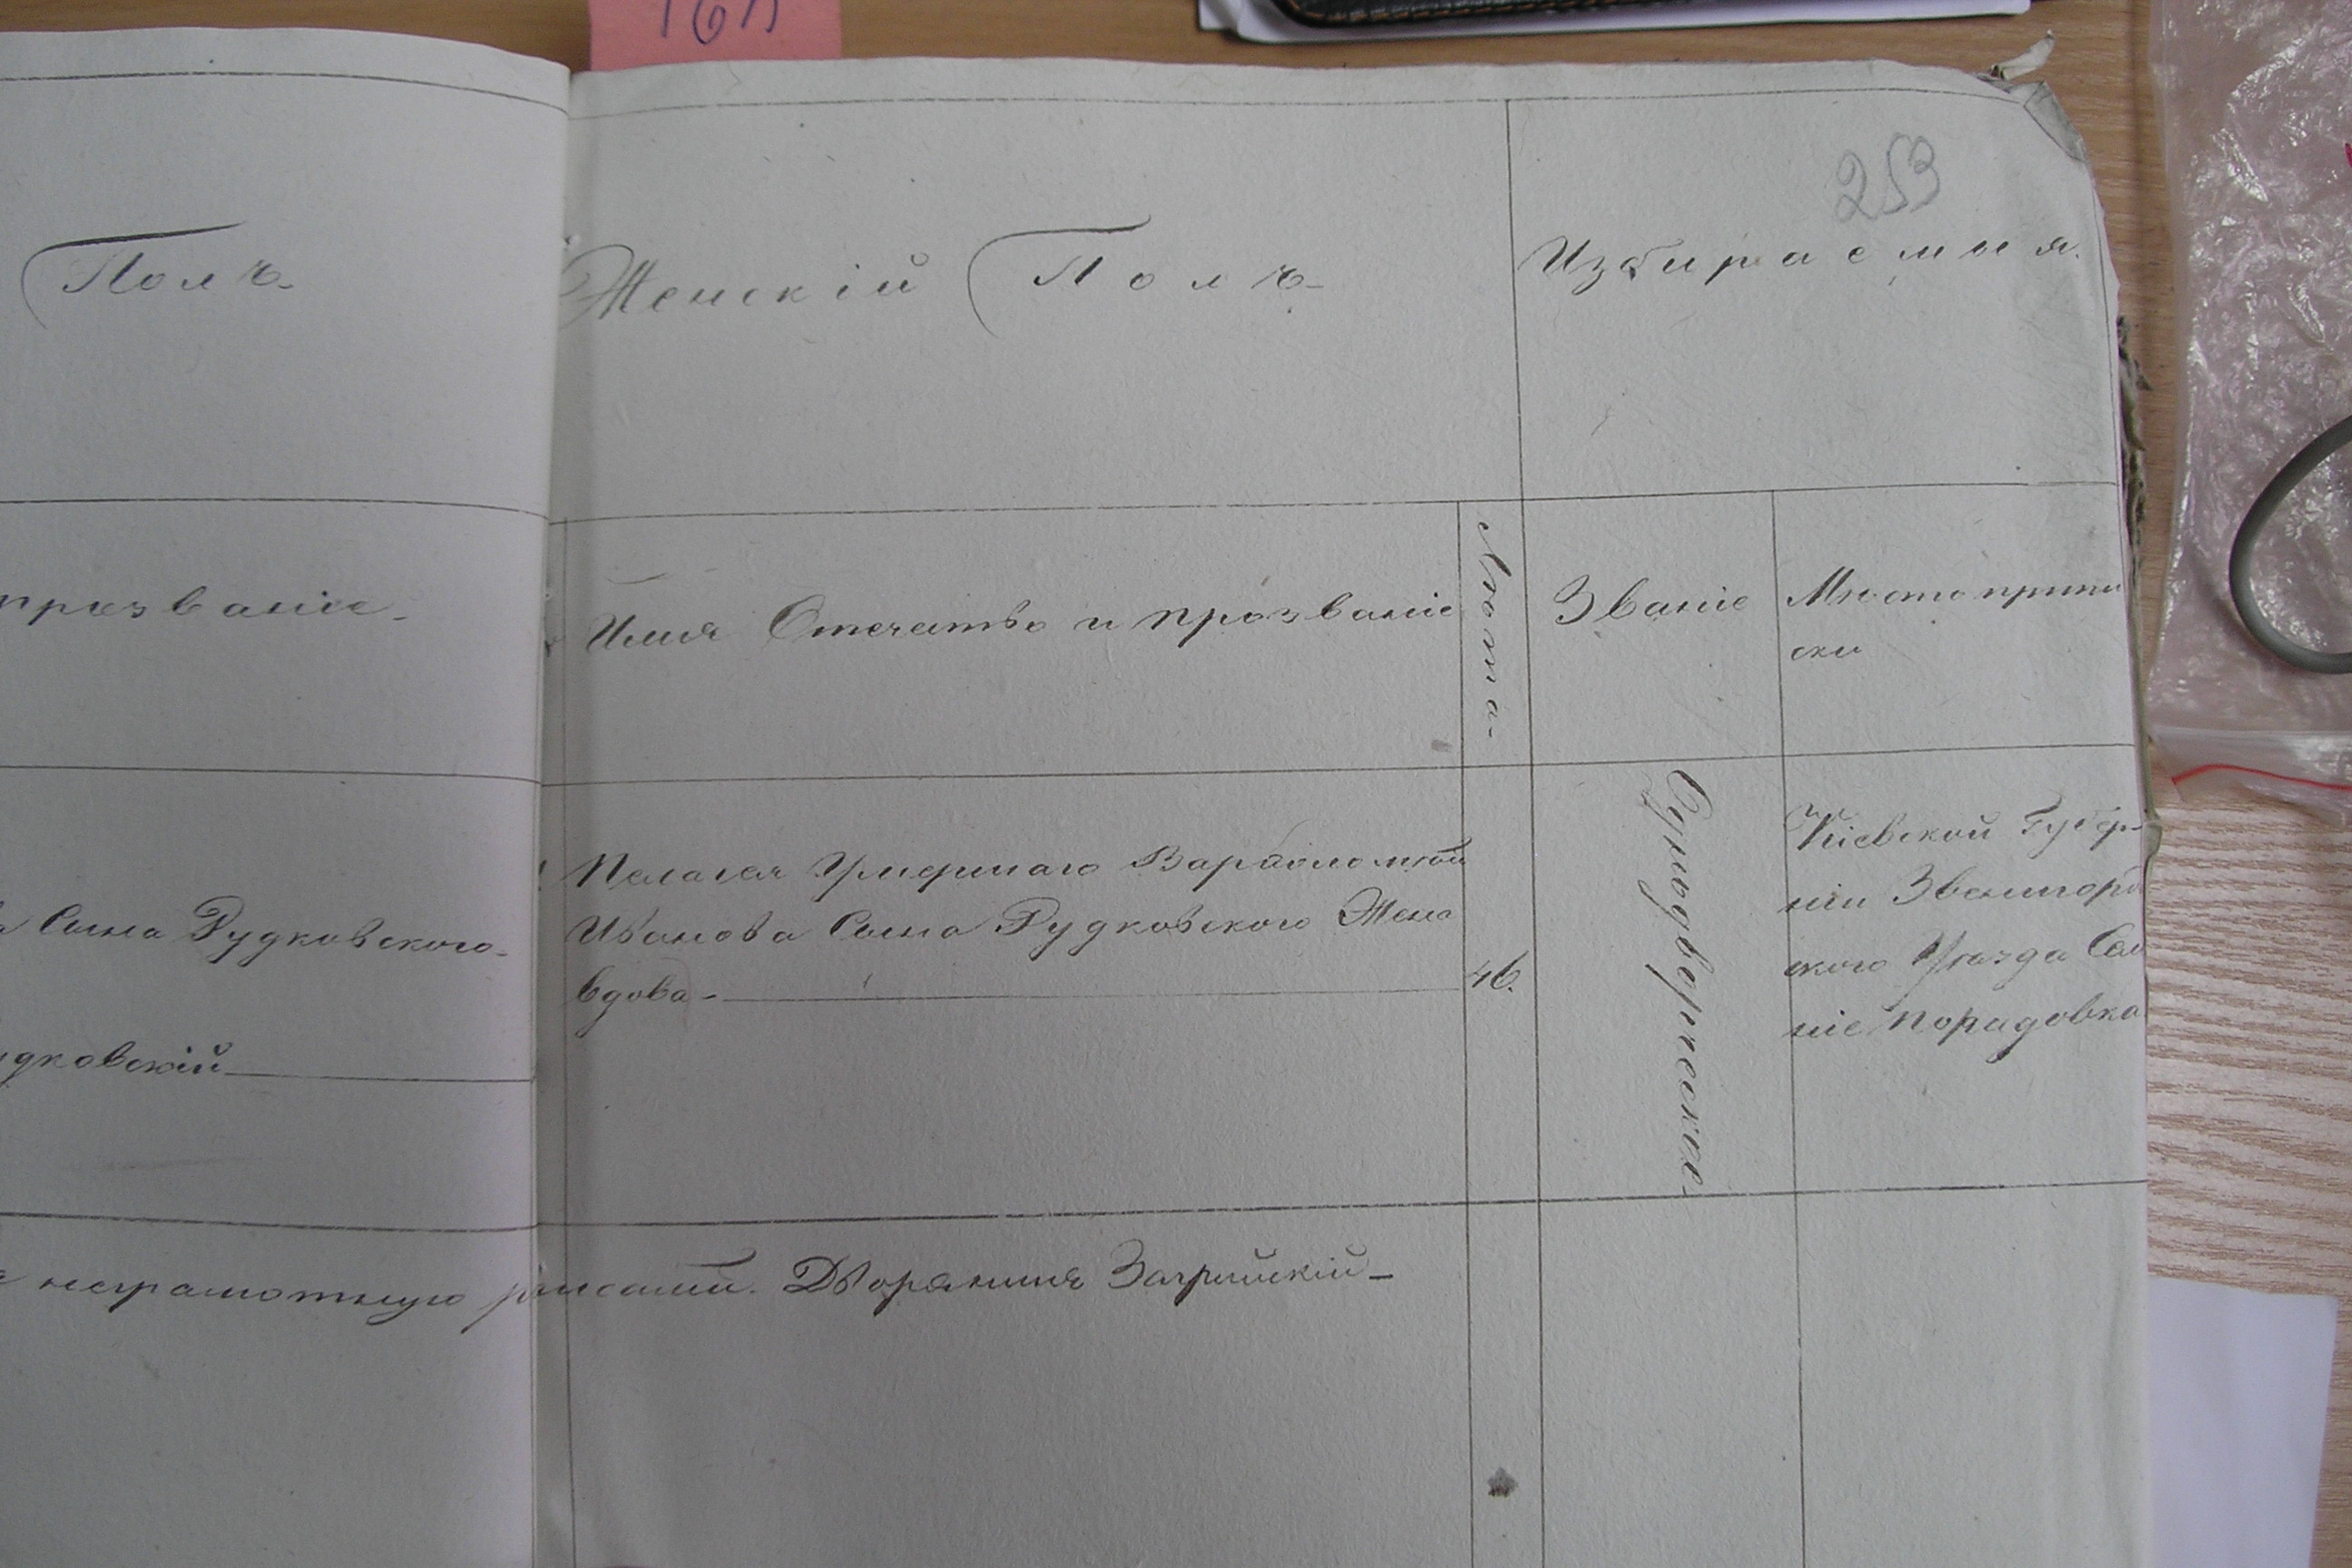 253
Полъ
Женскій Полъ
Избираемыя
прозваніе
Имя Отечество и прозваніе
Лѣта
Званіе
Мѣсто припи
ски
Сына Рудковскаго
удковскій
Пелагея Умершаго Варфоломѣя
Иванова Сына Рудковского Жена
вдова
46.
Однодворческое
Кіевской Губер-
ніи Звенигород
ского Уѣзда Сел
ніе Порадовка
неграмотную росписался. Дворянинъ